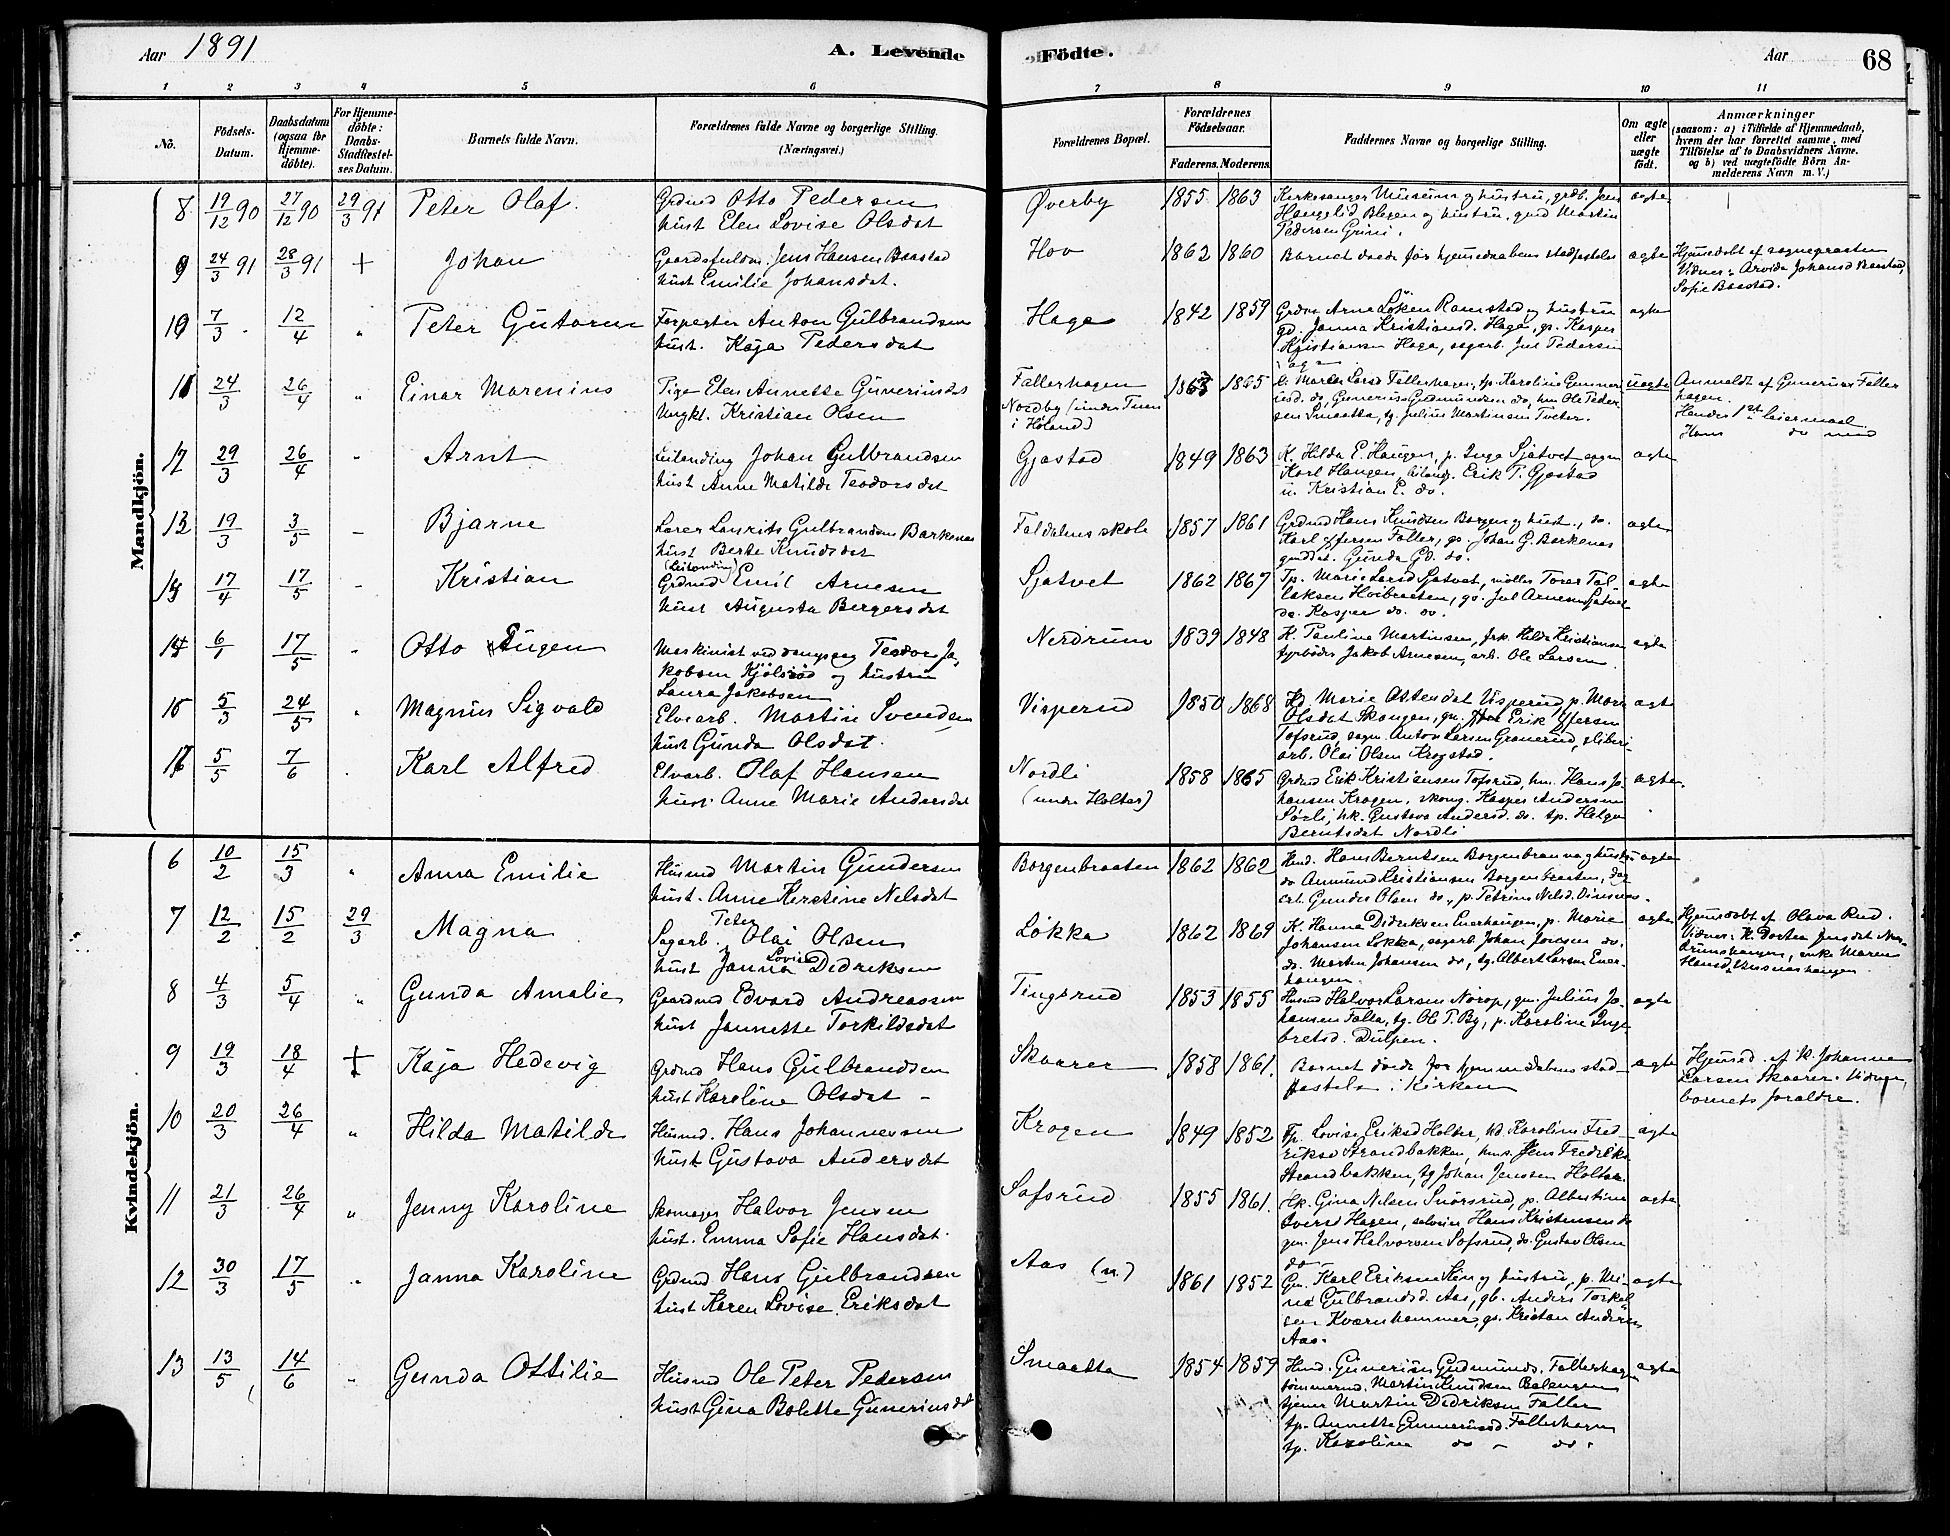 Aar 1891
A. Levende
Födte.
Aar
68
1 2 3 4 5 6 7 8 9 10 11
No.
Födsels-Datum.
Daabsdatum (ogsaa for Hjemme-døbte).
For Hjemme-döbte: Daabs-Stadfæstelses Datum.
Barnets fulde Navn.
Forældrenes fulde Navne og borgerlige Stilling.
(Næringsvei.)
Forældrenes Bopæl.
Forældrenes Födselsaar.
Faderens. Moderens.
Faddernes Navne og borgerlige Stilling.
Om ægte eller uægte født.
Anmærkninger
(saasom: a) i Tilfælde af Hjemmedaab, hvem der har forrettet samme, med Tilföielse af to Daabsvidners Navne. og b) ved uægtefödte Börn Anmelderens Navn m. V.)
Mandkjön.
8 19/12 90 27/12 90 29/3 91 Peter Olaf. Grdmd Otto Pedersen
hust Elen Lovise Olsdat
Øverby 1855 1863 Kirkesanger Museum og hustru, grdb. Jens
Haugelid Blegen og hustru, gmd Martin
Pedersen Grini.
ægte
9 24/3 91 28/3 91 + Johan Gaardsfuldm. Jens Hansen Baastad
hust Emilie Johansdat.
Hov 1862 1860 Barnet døde før hjemmedaabens stadfæstelse ægte
Hjemmedøbt af sognepresten
Vidner: Arvida Johansd Baastad,
Sofie Baastad.
10 7/3 12/4 " Peter Gutorm Forpagter Anton Gulbrandsen
hust. Kaja Pedersdat
Haga 1842 1859 Grdmd Arne Løken Ramstad og hustru
gd. Janna Kristiansd. Haga, gs. Kasper
Kristiansen Haga, sagarb. Jul Pedersen
ægte
11 24/3 26/4 " Einar Marenius Pige Elen Annette Guneriusdat
Ungkl. Kristian Olsen
Fallerhagen
Nordby (under Tuen
i Høland)
1863 1865
uægte
Anmeldt af Gunerius Faller
hagen.
Hendes 1ste leiermaal
Hans do med
12 29/3 26/4 " Arnt Leilending Johan Gulbrandsen
hust Anne Matilde Teodorsdat
Gjøstad 1849 1863 K. Hilda E. Haugen, p. Inga Sjatvet
Karl Haugen, leilang. Erik T. Gjøstad
u. Kristian E. do.
ægte
13 19/3 3/5 - Bjarne Lærer Laurits Gulbrandsen Barkenæs
hust Berte Knudsdat
Faldalens skole 1857 1861 Grdmd Hans Knudsen Borgen og hust., do.
Karl Iffersen Faller, gs. Johan G. Barkenæs
gmddat. Gunda Gd. do.
ægte
14 17/4 17/5 - Kristian (Leilending)
Grdmd Emil Arnesen
hust Augusta Bergersdat
Sjatvet 1862 1867 Tp. Marie Larsd Sjatvet, møller Tores Tol
laksen Høibraaten, gs. Jul Arnesen Sjatvet
do. Kasper do. do.
ægte
14 6/1 17/5 " Otto Eugen Maskinist ved dampsag Teodor Ja-
kobsen Kjölsrød og hustru
Laura Jakobsen
Nerdrum 1839 1848 K. Pauline Martinsen, frk. Hilda Kristiansen
fyrbøder Jakob Arnesen, arb. Ole Larsen.
ægte
15 5/3 24/5 " Magnus Sigvald Elvearb. Martin Svendsen
hust Gunda Olsdat.
Visperud 1850 1868 Hd. Marie Ottersdat Visperud, p. Marie
Olsdat Skaugen, gm. Erik Iffersen
Tofsrud, sagm. Anton Larsen Granerud, sliberi
arb. Olai Olsen Krogstad.
ægte
16 5/5 7/6 Karl Alfred Elvarb. Olaf Hansen
hust. Anne Marie Andersdat
Nordli
(under Holter)
1858 1865 Grdmd Erik Kristiansen Tofsrud, hm. Hans Jo-
hansen Kragen, skomg. Kasper Andersen
Sørli, hk. Gustava Andersd. do. tp. Helga
Berntsdat Nordli
ægte.
Kvindekjön.
6 10/2 15/3 " Anna Emilie Husmd Martin Gundersen
hust. Anne Kerstine Nelsdat
Borgenbraaten 1862 1862 Hmd. Hans Berntsen Borgenbraaten og hustru
do Anmund Kristiansen Borgenbraaten, dag
arb. Gunder Olsen do., p. Petrine Nelsd.
ægte
7 12/2 15/2 29/3 Magna Sagarb. Peter Olai Olsen
hust Janna Lovise Didriksen
Løkka 1862 1869 K. Hanna Didriksen Enerhaugen, p. Marie
Johansen Løkka, sagarb. Johan Jonesen do.
do. Martin Johansen do, tg. Albert Larsen Ener-
haugen.
ægte
Hjemmedøbt af Olava Rud.
Vidner: K. Dortea Jensdat Ner-
drumshaugen, enke Maren
Hansd. Musnushaugen.
8 4/3 5/4 " Gunda Amalie Gaardmd Edvard Andreassen
hust Jannette Torkildsdat
Tingsrud 1853 1855 Husmd Halvor Larsen Norop, gm. Julius Jo-
hansen Falla, tg. Ole T. By, p. Karoline Inge
bretsd. Dulpen.
ægte
9 19/3 18/4 + Kaja Hedevig Grdmd Hans Gulbrandsen
hust Karoline Olsdat -
Skaarer 1858 1861. Barnet døde før hjemmedabens stad-
fæstelse i kirken
ægte
Hjemmed. af k. Johanne
Larsen Skaarer. Vidner,
barnets forældre.
10 20/3 26/4 " Hilda Matilde Husmd. Hans Johannessen
hust Gustava Andersdat
Kragen 1849 1852 Tp. Lovise Eriksd Holter, hd. Karoline Fred-
riksd Strandbakken, hms. Jens Fredriks.
Strandbakken, tg Johan Jensen Holter.
ægte
11 21/3 26/4 " Jenny Karoline Skomager Halvor Jensen
hust. Emma Sofie Hansdat.
Sofsrud 1855 1861. Hk. Gina Nilsen Snørsrud, p. Albertine
Iversd Hagen, selveier Hans Kristensen do
gm. Jens Halvorsen Sofsrud, do. Gustav Olsen
do -
ægte
12 30/3 17/5 " Janna Karoline Grdmd Hans Gulbrandsen
hust Karen Lovise Eriksdat
Aas (n.) 1861 1852 Gm. Karl Eriksen Kin og hustru, p. Mi-
na Gulbrandsd. Aas, gb. Anders Torkel
sen Kværnhammer, gs. Kristan Andersen
Aas.
ægte
13 13/5 14/6 " Gunda Ottilie Husmd Ole Peter Pedersen
hust Gina Bolette Guneriusdat
Smaatta 1854 1859 Husmd. Gunerius Gudmunds. Fallerhagen
tømmermd. Martin Knudsen
tjener Martin Didriksen Faller
tp. Annette Gunneriusd. Fallerhagen
tp. Karoline do - do.
ægte